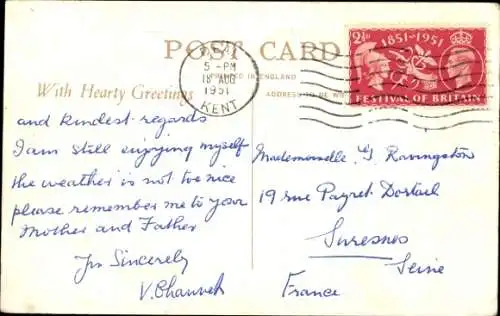 POST CARD
PRINTED IN ENGLAND
With Hearty Greetings
ADDRESS TO BE
5 - PM
18 AUG
1951
KENT
2½D
1851-1951
FESTIVAL OF BRITAIN
and kindest regards
I am still enjoying myself
the weather is not too nice
please remember me to your
Mother and Father
Yrs Sincerely
Mademoiselle G Ravingston
19 rue Payret Dortail
Suresnes
Seine
France